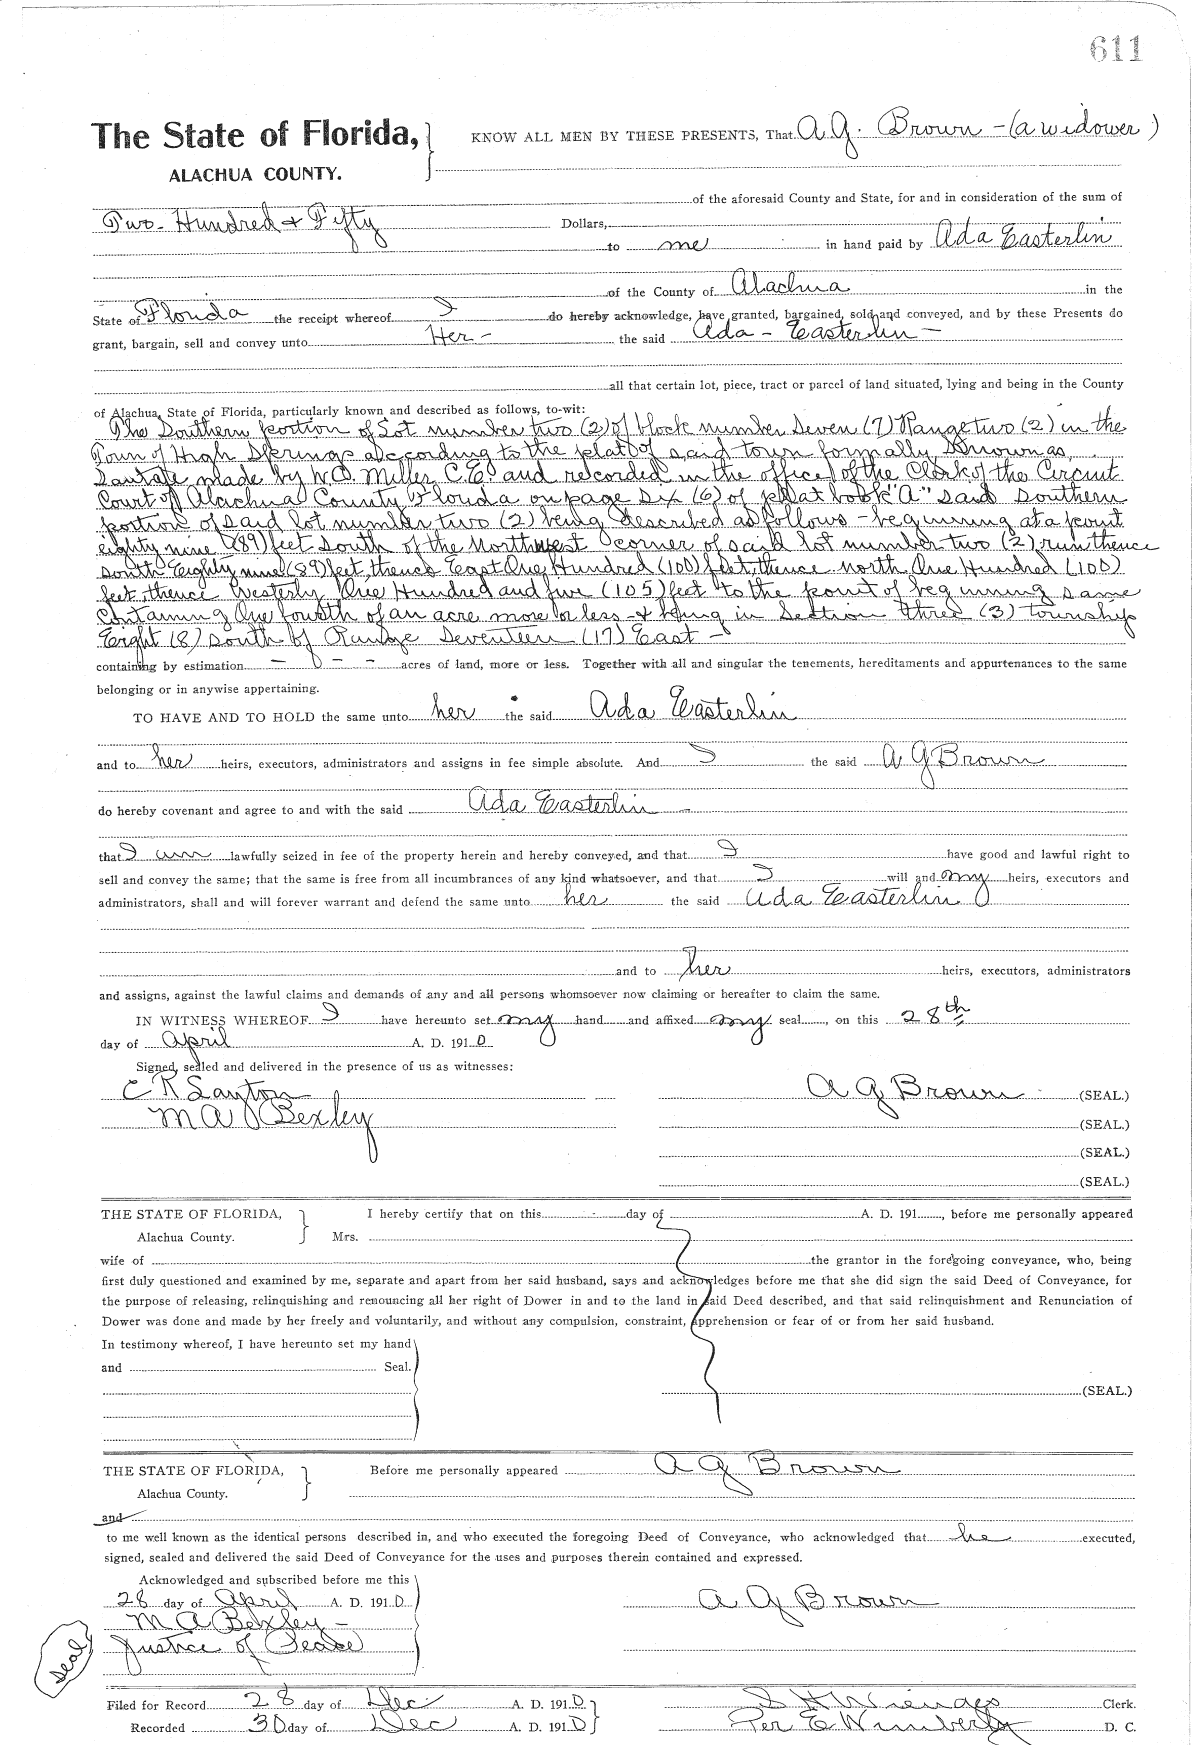 611
The State of Florida,
ALACHUA COUNTY.
KNOW ALL MEN BY THESE PRESENTS, That A. G. Brown - (a widower)
of the aforesaid County and State, for and in consideration of the sum of
Two - Hundred + Fifty Dollars,
to me in hand paid by Ada Easterlin
of the County of Alachua in the
State of Florida the receipt whereof I do hereby acknowledge, have granted, bargained, sold and conveyed, and by these Presents do
grant, bargain, sell and convey unto Her - the said Ada - Easterlin -
all that certain lot, piece, tract or parcel of land situated, lying and being in the County
of Alachua, State of Florida, particularly known and described as follows, to-wit:
The Southern portion of Lot number two (2) of block number Seven (7) Range two (2) in the
Town of High Springs according to the plat of said town formally Known as
Santafe made by N. D. Miller C. E. and recorded in the office of the Clerk of the Circuit
Court of Alachua County Florida on page six (6) of plat book "A" said Southern
portion of said lot number two (2) being described as follows - beginning at a point
eighty nine (89) feet South of the Northwest corner of said lot number two (2) run thence
South Eighty nine (89) feet, thence East One Hundred (100) feet, thence north One Hundred (100)
feet, thence Westerly One Hundred and five (105) feet to the point of beginning same
containing One fourth of an acre more or less + being in Section three (3) township
Eight (8) South of Range Seventeen (17) East -
containing by estimation - - - acres of land, more or less. Together with all and singular the tenements, hereditaments and appurtenances to the same
belonging or in anywise appertaining.
TO HAVE AND TO HOLD the same unto her the said Ada Easterlin
and to her heirs, executors, administrators and assigns in fee simple absolute. And I the said A G Brown
do hereby covenant and agree to and with the said Ada Easterlin -
that I am lawfully seized in fee of the property herein and hereby conveyed, and that I have good and lawful right to
sell and convey the same; that the same is free from all incumbrances of any kind whatsoever, and that I will and my heirs, executors and
administrators, shall and will forever warrant and defend the same unto her the said Ada Easterlin
and to her heirs, executors, administrators
and assigns, against the lawful claims and demands of any and all persons whomsoever now claiming or hereafter to claim the same.
IN WITNESS WHEREOF I have hereunto set my hand and affixed my seal, on this 28th
day of April A. D. 1910
Signed, sealed and delivered in the presence of us as witnesses:
C R Layton A G Brown (SEAL.)
M A Bexley (SEAL.)
(SEAL.)
(SEAL.)
THE STATE OF FLORIDA, I hereby certify that on this day of A. D. 191 , before me personally appeared
Alachua County. Mrs.
wife of the grantor in the foregoing conveyance, who, being
first duly questioned and examined by me, separate and apart from her said husband, says and acknowledges before me that she did sign the said Deed of Conveyance, for
the purpose of releasing, relinquishing and renouncing all her right of Dower in and to the land in said Deed described, and that said relinquishment and Renunciation of
Dower was done and made by her freely and voluntarily, and without any compulsion, constraint, apprehension or fear of or from her said husband.
In testimony whereof, I have hereunto set my hand
and Seal.
(SEAL.)
THE STATE OF FLORIDA, Before me personally appeared A G Brown
Alachua County.
and
to me well known as the identical persons described in, and who executed the foregoing Deed of Conveyance, who acknowledged that he executed,
signed, sealed and delivered the said Deed of Conveyance for the uses and purposes therein contained and expressed.
Acknowledged and subscribed before me this
28 day of April A. D. 1910 A G Brown
M A Bexley -
Justice of Peace
Seal
Filed for Record 28 day of Dec A. D. 1910 S H Wienges Clerk.
Recorded 30 day of Dec A. D. 1910 Per E Wimberly D. C.